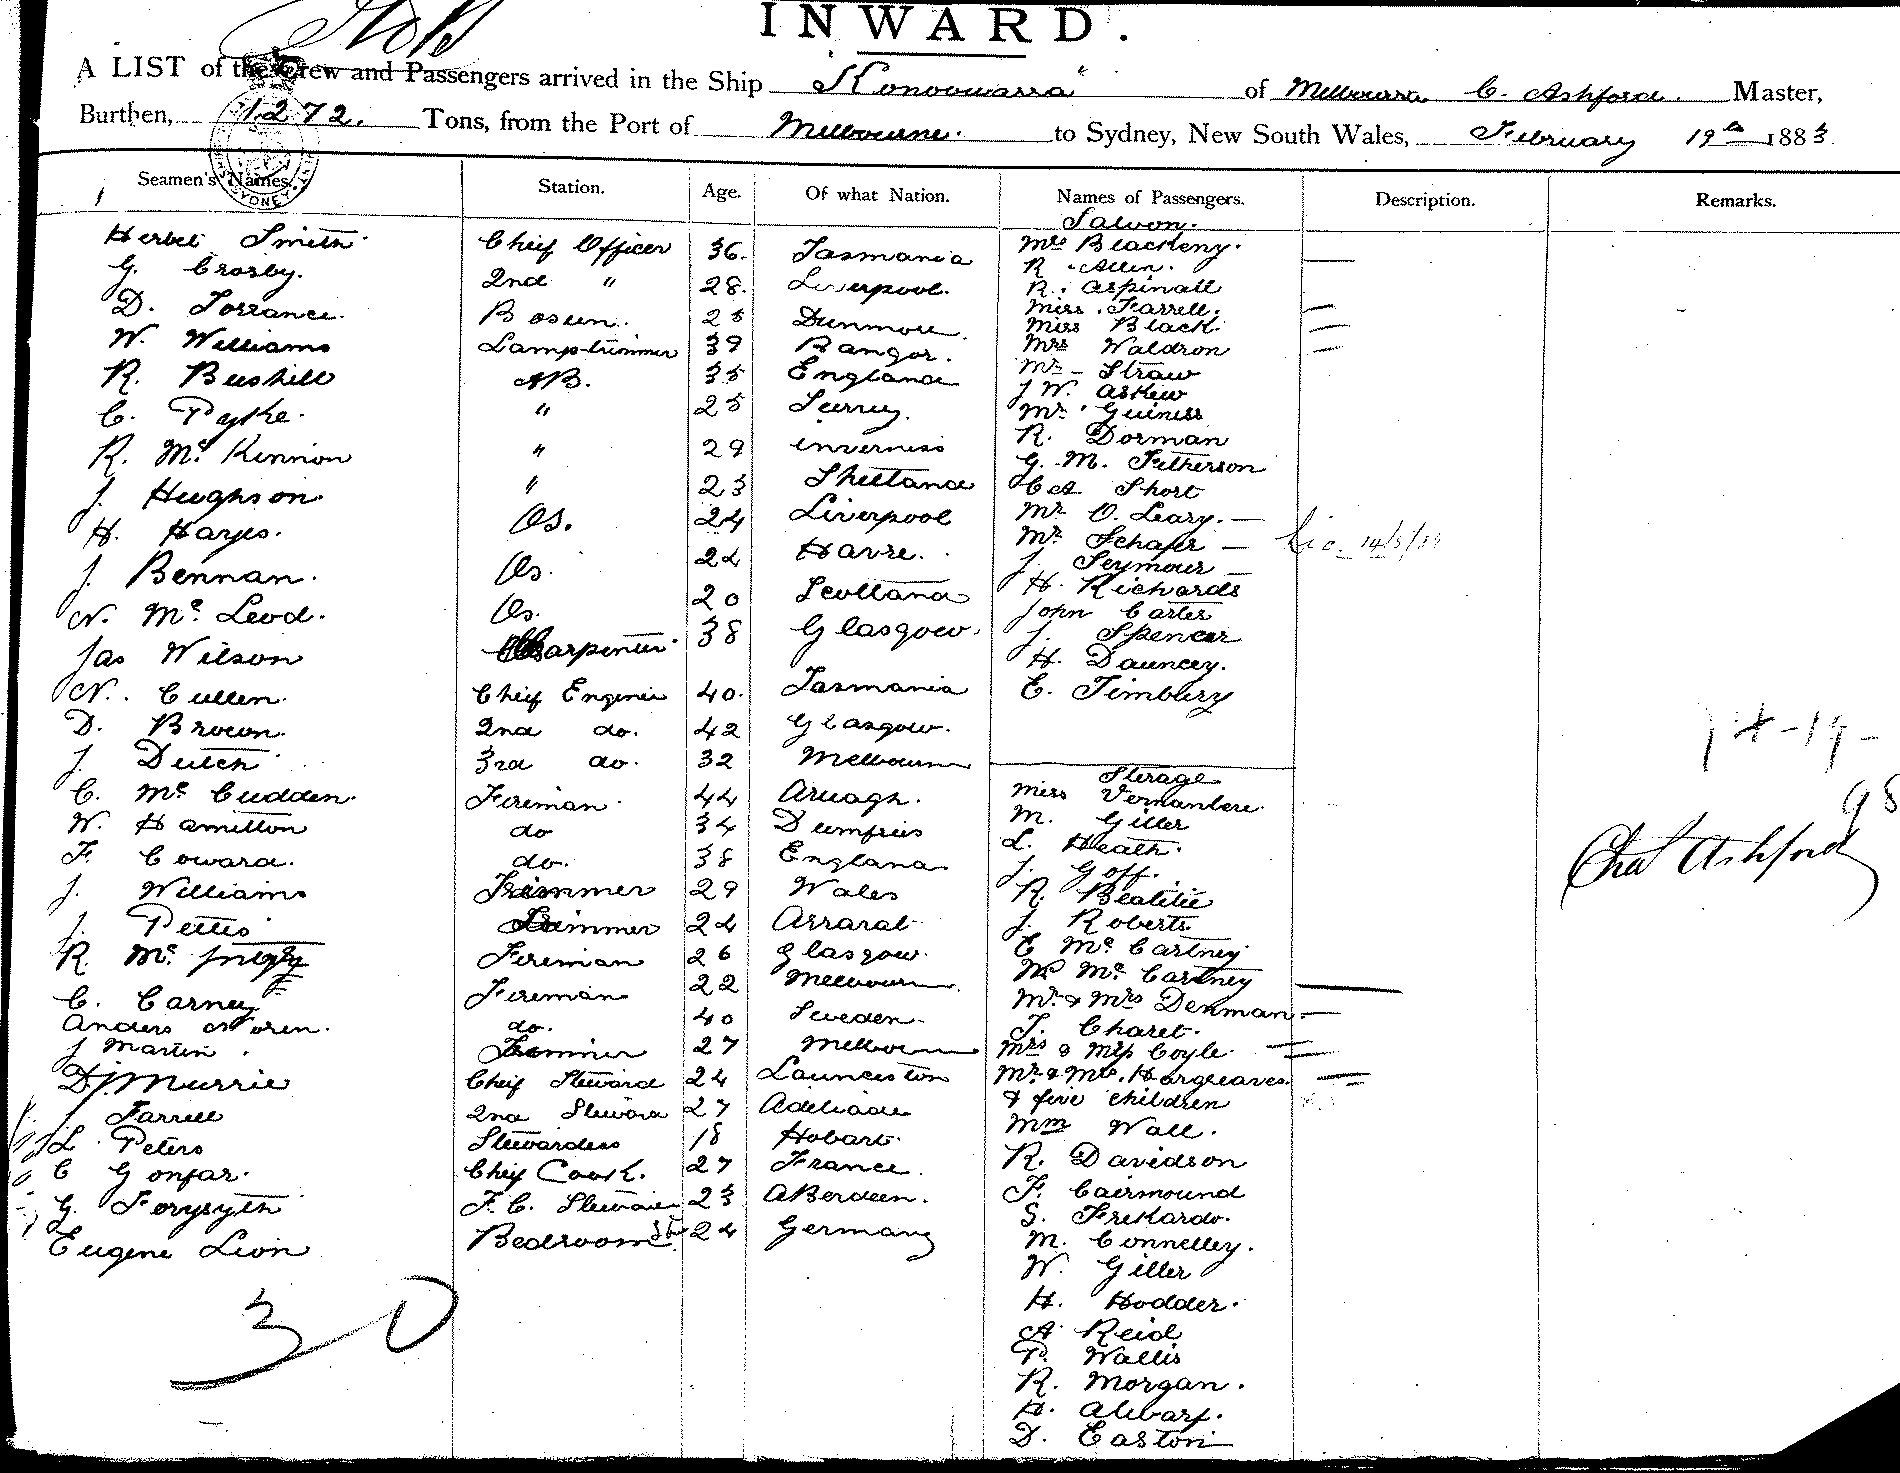 INWARD.
A LIST of the Crew and Passengers arrived in the Ship "Konoowarra" of Melbourne C. Ashford. Master,
Burthen, 1272. Tons, from the Port of Melbourne. to Sydney, New South Wales, February 19th 1883
Seamen's Names. Station. Age. Of what Nation. Names of Passengers. Description. Remarks.
Saloon.
Herbet Smith Chief Officer 36. Tasmania Mrs Blackeny.
G. Crosby. 2nd " 28. Liverpool. R. Allen.
R. Aspinall
D. Torrance. Bosun. 25 Dunmore Miss Farrell.
Miss Black.
W. Williams Lamp-trimmer 39 Bangor. Mrs Waldron
R. Bushill AB. 35 England Mr Straw
J W. Askew
C. Pyke. " 25 Surrey. Mr Guiness
R. Dorman
R. Mc Kinnon " 29 inverness G. M. Fetherson
J. Hughson " 23 Shetland CA Short
H. Hayes. Os. 24 Liverpool Mr O. Leary.
Mr Schafer
J. Bennan. Os. 24 Havre. J. Seymour
H. Richards
N. Mc Leod. Os. 20 Scotland John Carter
Jas Wilson Carpenter 38 Glasgow. J. Spencer
H. Dauncey.
N. Cullen. Chief Engineer 40. Tasmania E. Timbury
D. Brown. 2nd do. 42 Glasgow.
J. Dutch 3rd do. 32 Melbourne
Sterage
C. Mc Cudden. Fireman 44 Armagh. Miss Vernanbere.
W. Hamilton do 34 Dumfries M. Giller
F. Coward. do. 38 England L. Heath.
J. Goff.
J. Williams Trimmer 29 Wales R. Beattie
J. Pettis Trimmer 24 Arrarat J. Roberts
R. Mc Fireman 26 Glasgow. E Mc Cartney
C. Carney Fireman 22 Melbourne W Mc Cartney
Mr & Mrs Denman
Anders Noren. do. 40 Sweden. J. Charet.
J Martin. Trimmer 27 Melbourne Mrs & Miss Coyle.
D J Murrie Chief Steward 24 Launceston Mr & Mrs. Hargreaves
J Farrell 2nd Steward 27 Adeliade & five children
L. Peters Stewardess 18 Hobart. Wall.
C Gonfar. Chief Cook. 27 France. R. Davidson
G. Forysyth F. C. Steward 23 ABerdeen. F. Cairmound
S. Frekardo.
Eugene Lion Bedroom St 24 Germany M. Connelley.
W. Giller
H. Hodder.
A Reid
P. Wallis
R. Morgan.
H.
D. Easton
30
Chas Ashford